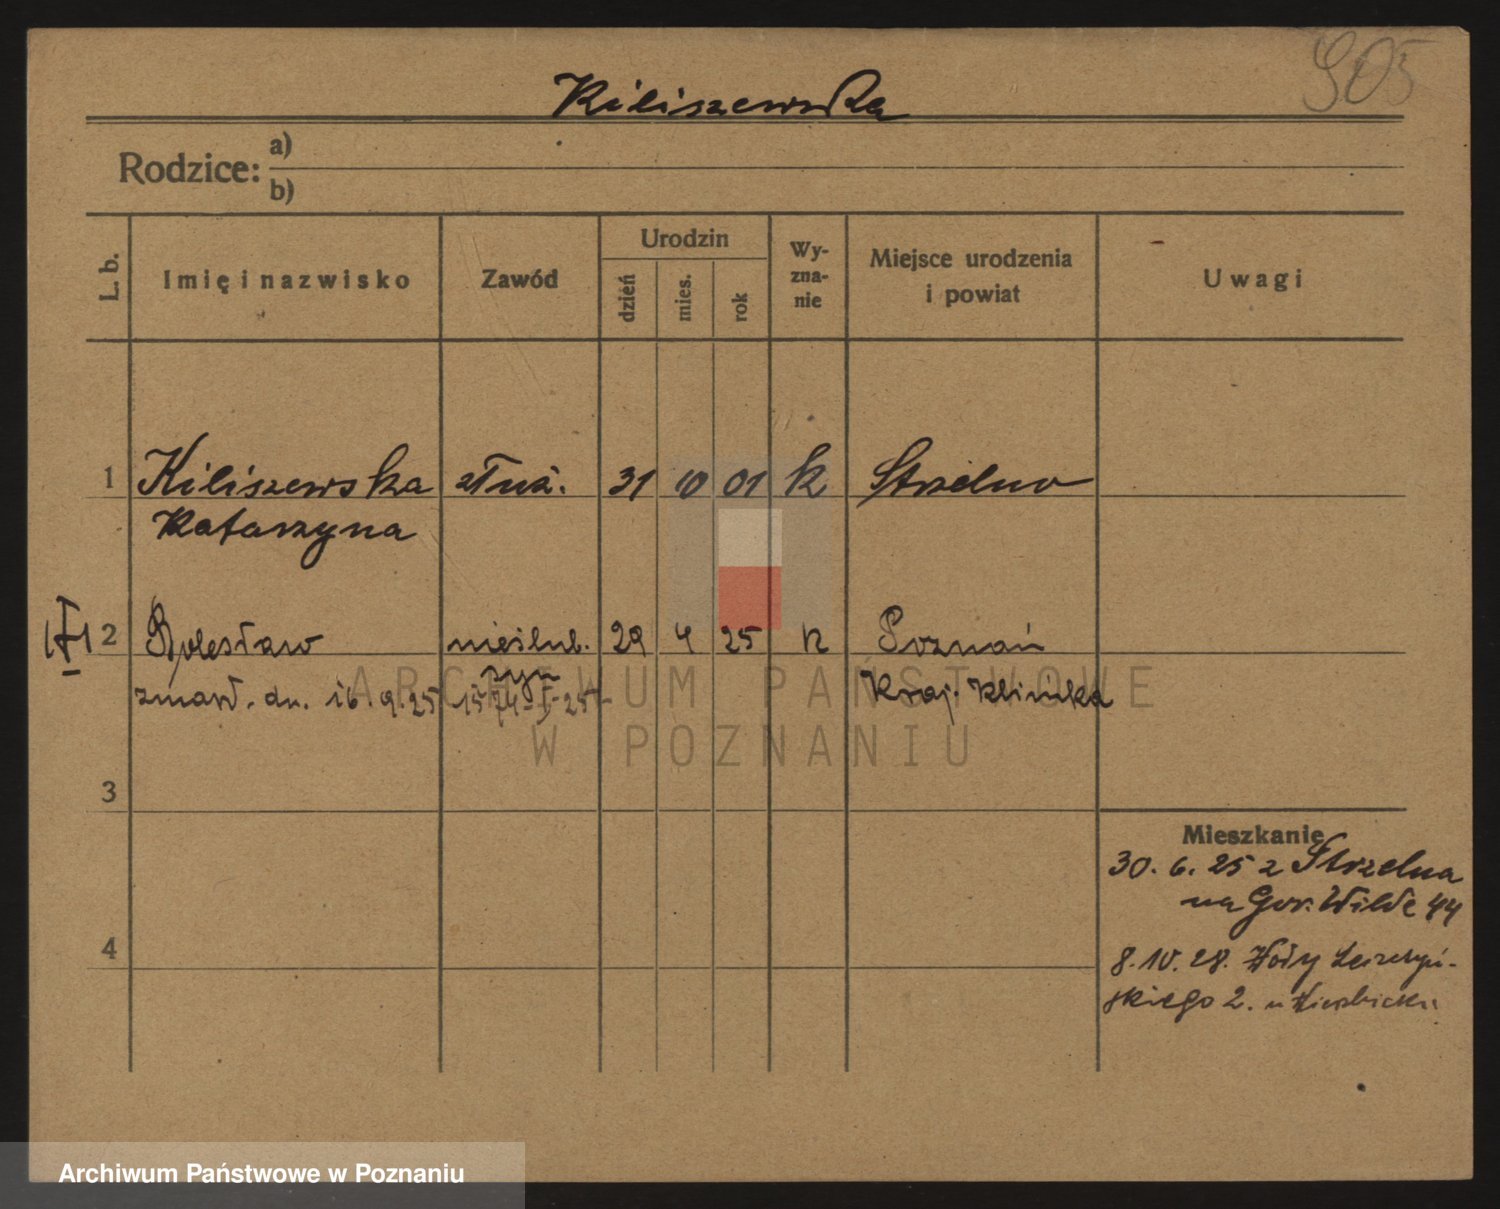 905
Kiliszewska
Rodzice: a)
b)
L. b.
Imię i nazwisko
Zawód
Urodzin
dzień
mies.
rok
Wy-
zna-
nie
Miejsce urodzenia
i powiat
Uwagi
1 Kiliszewska służ. 31 10 01 k Strzelno
Katarzyna
2 Bolesław nieślub. 29 4 25 k Poznań
syn
zmarł. dn. 16.9.25 Kraj. Klinika
3
4
Mieszkanie
30. 6. 25 z Strzelna
na Gór. Wilde 44
8. 10. 28.
skiego 2. u
ARCHIWUM PAŃSTWOWE
W POZNANIU
Archiwum Państwowe w Poznaniu